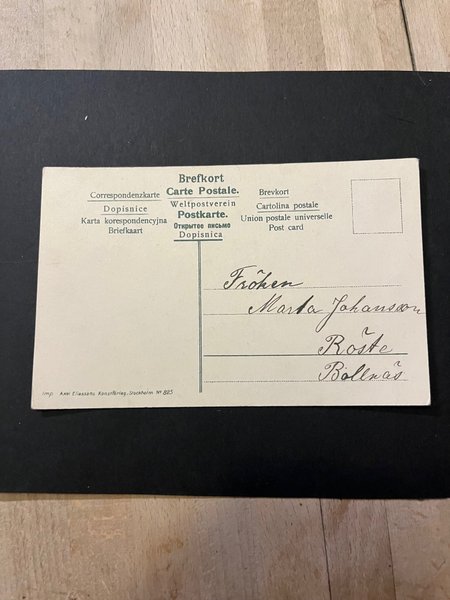 Brefkort
Correspondenzkarte Carte Postale. Brevkort
Dopisnice Weltpostverein Cartolina postale
Karta korespondencyjna Postkarte. Union postale universelle
Briefkaart Открытое письмо Post card
Dopisnica
Fröken
Marta Johansson
Röste
Bollnäs
Imp. Axel Eliassons Konstförlag, Stockholm Nº 825